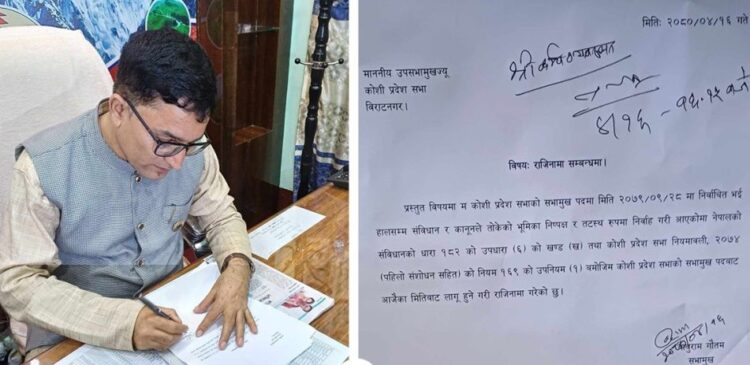 मितिः २०८०/०४/१६ गते
माननीय उपसभामुखज्यू
कोशी प्रदेश सभा
विराटनगर।
४/१६
विषयः राजिनामा सम्बन्धमा।
प्रस्तुत विषयमा म कोशी प्रदेश सभाको सभामुख पदमा मिति २०७९/०९/२८ मा निर्वाचित भई
हालसम्म संविधान र कानूनले तोकेको भूमिका निष्पक्ष र तटस्थ रुपमा निर्वाह गरी आएकोमा नेपालको
संविधानको धारा १८२ को उपधारा (६) को खण्ड (ख) तथा कोशी प्रदेश सभा नियमावली, २०७४
(पहिलो संशोधन सहित) को नियम १६९ को उपनियम (१) बमोजिम कोशी प्रदेश सभाको सभामुख पदबाट
आजैका मितिबाट लागू हुने गरी राजिनामा गरेको छु।
गौतम
सभामुख